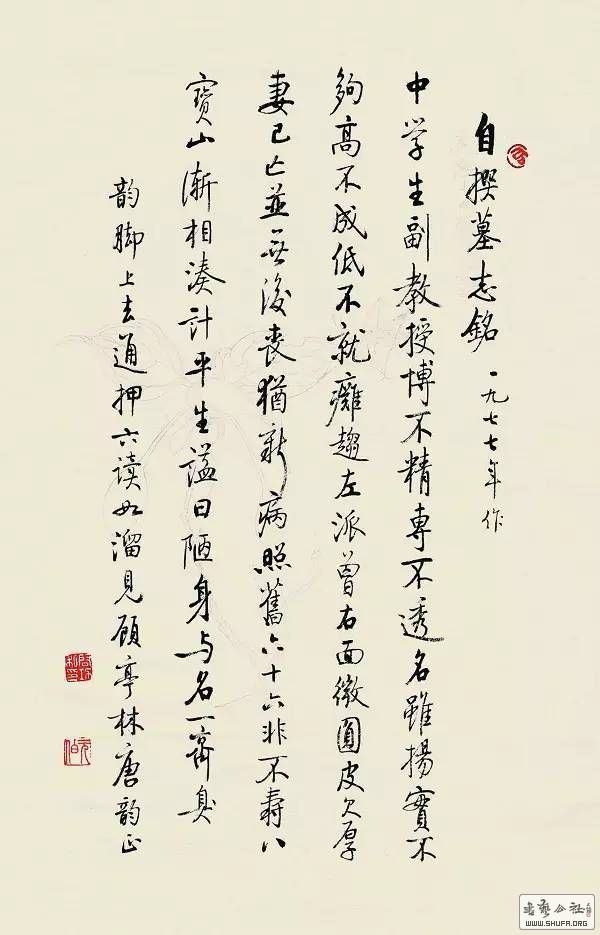 自撰墓志銘 一九七七年作
中学生副教授博不精專不透名雖揚實不
夠高不成低不就癱趨左派曾右面微圓皮欠厚
妻已亡並无後喪猶新病照舊六十六非不壽八
寶山漸相湊計平生謚曰陋身与名一齊臭
韵脚上去通押六读如溜見顾亭林唐韵正
书艺公社
WWW.SHUFA.ORG